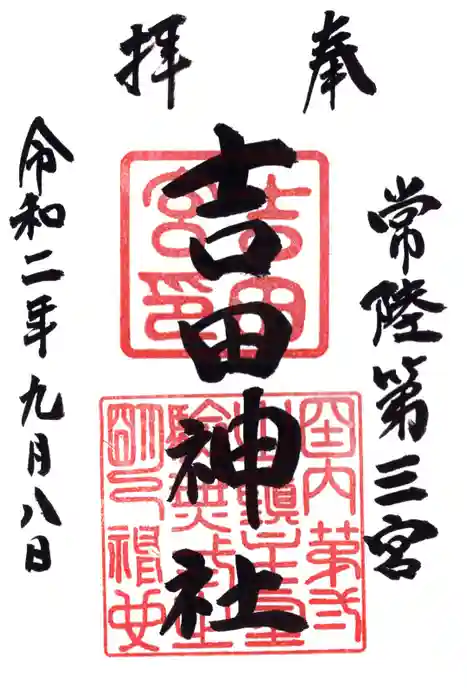 奉拝
常陸第三宮
吉田神社
令和二年九月八日
吉田宮印